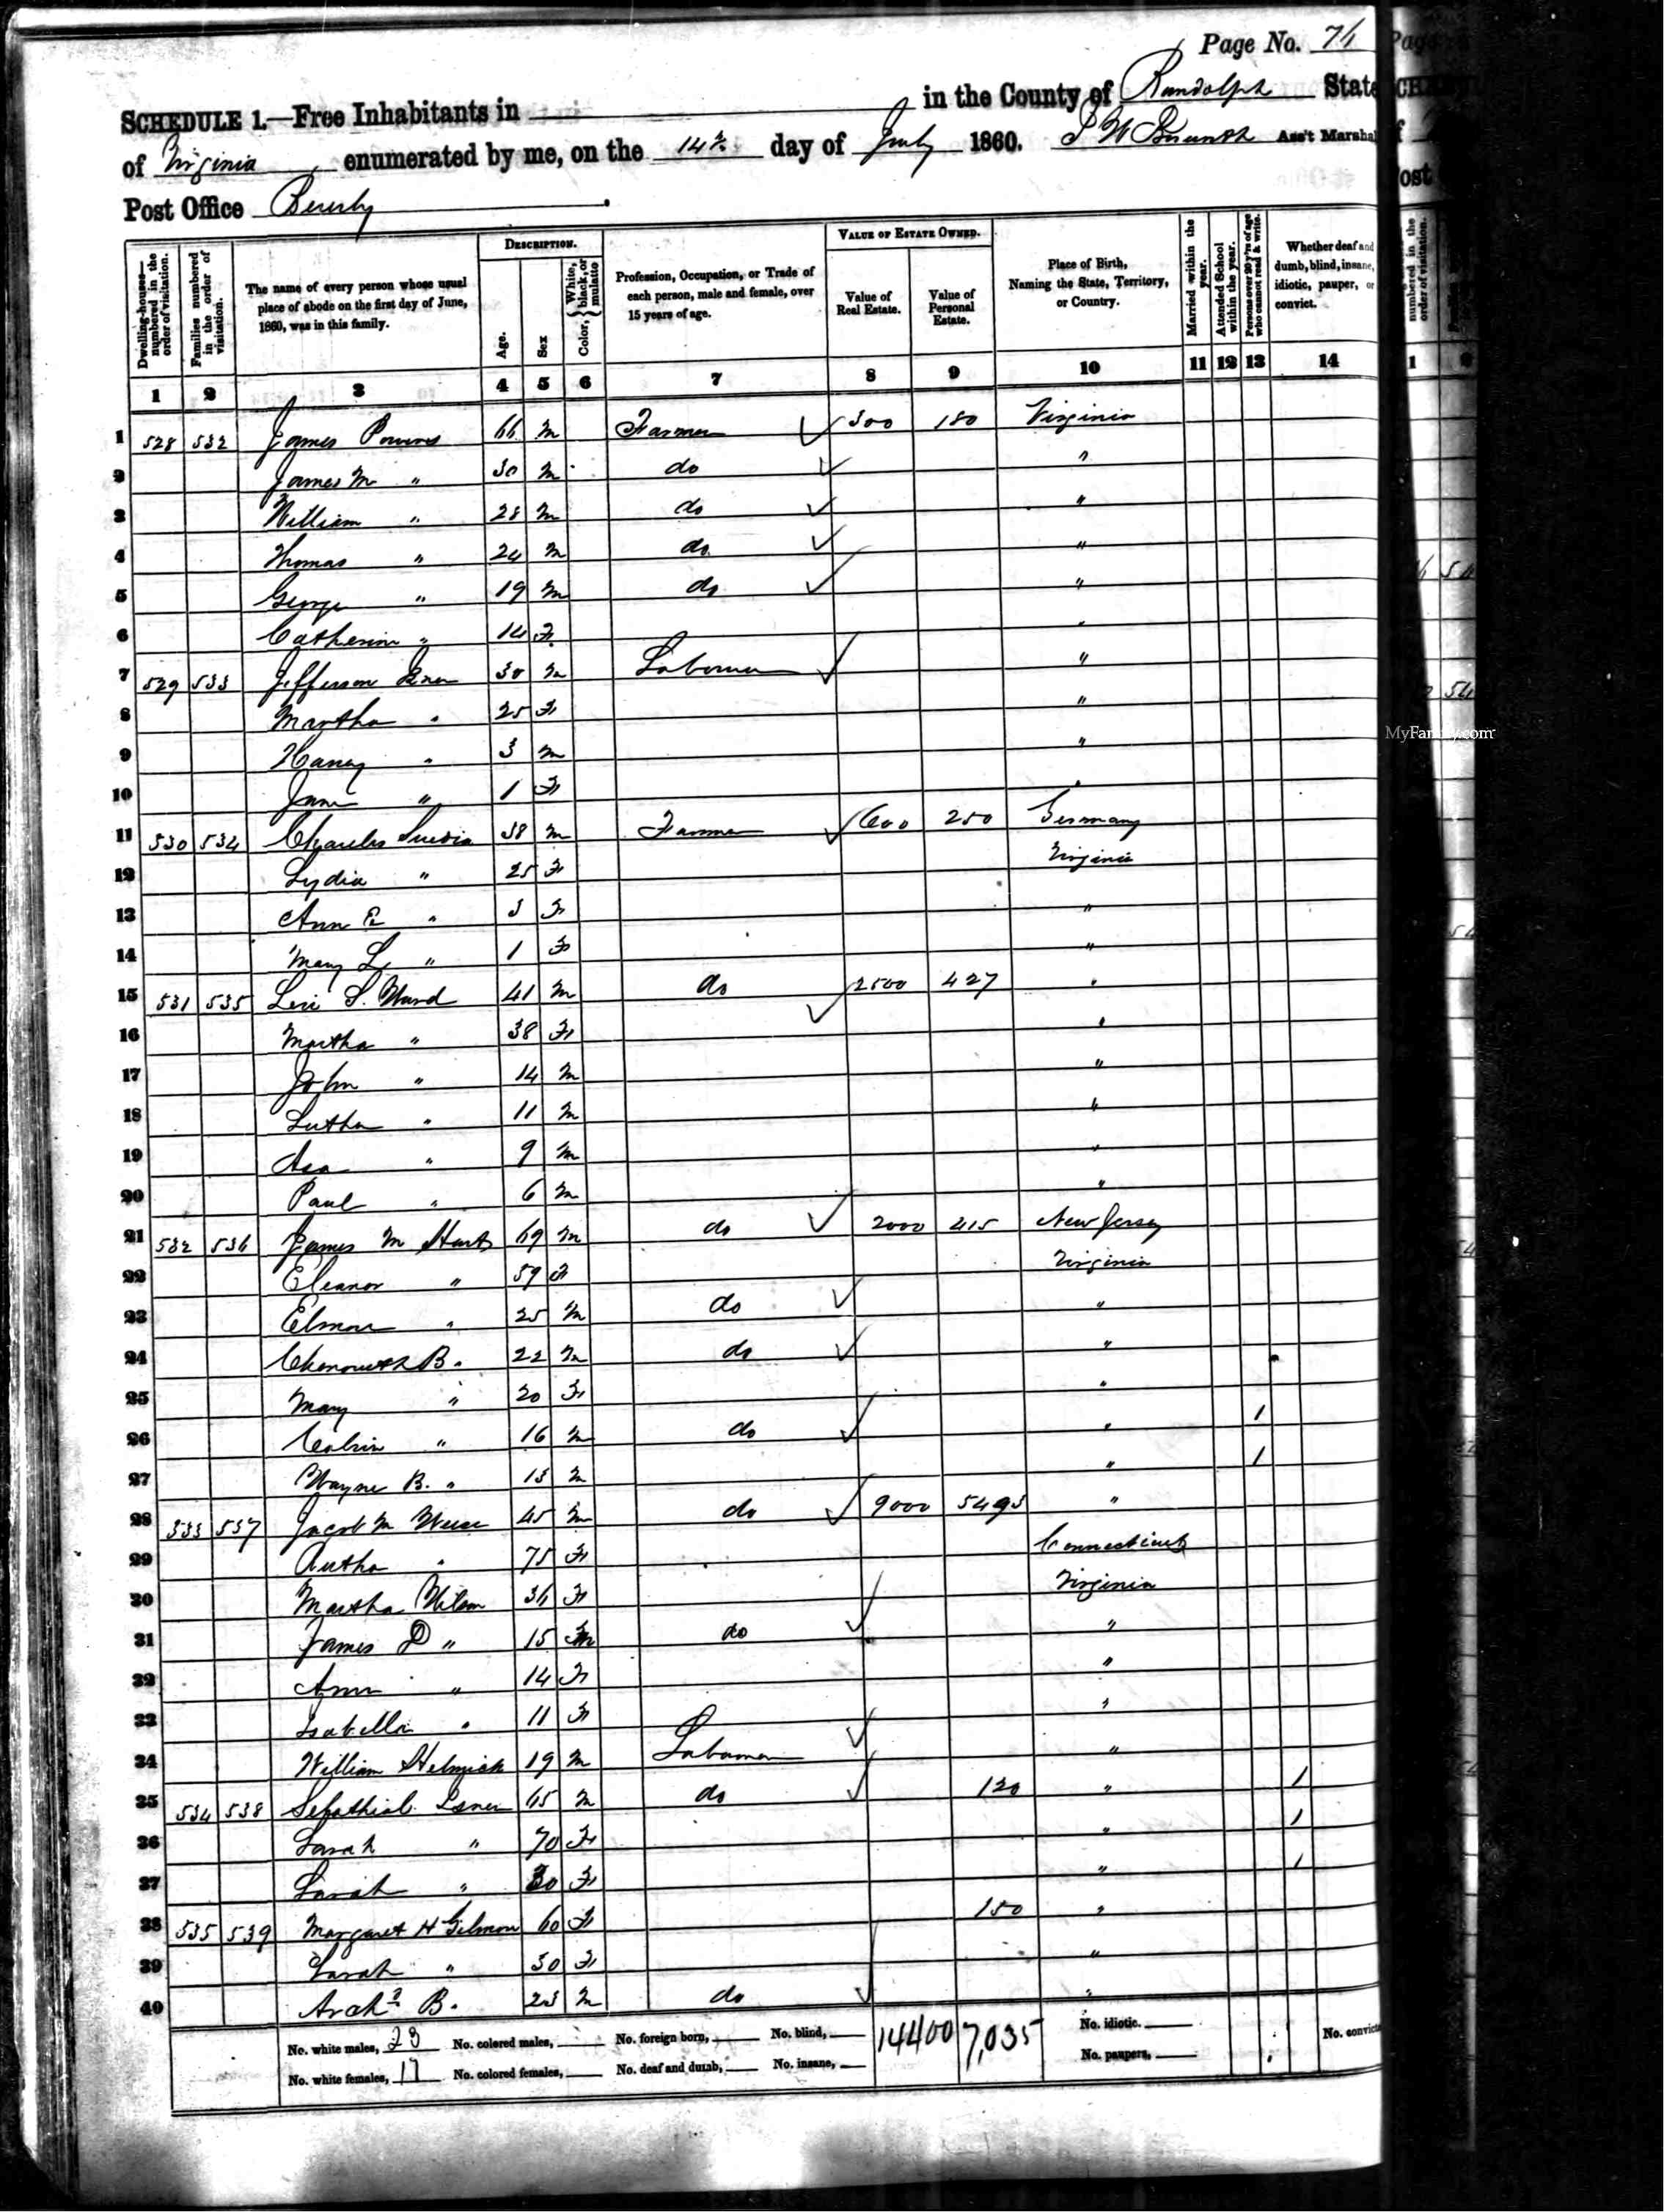 Page No. 74
SCHEDULE 1.—Free Inhabitants in in the County of Randolph State
of Virginia enumerated by me, on the 14th day of July 1860. Ass't Marshal
Post Office Beverly
Dwelling-houses—numbered in the order of visitation.
Families numbered in the order of visitation.
The name of every person whose usual place of abode on the first day of June, 1860, was in this family.
DESCRIPTION.
Age.
Sex
Color, { White, black, or mulatto
Profession, Occupation, or Trade of each person, male and female, over 15 years of age.
VALUE OF ESTATE OWNED.
Value of Real Estate.
Value of Personal Estate.
Place of Birth, Naming the State, Territory, or Country.
Married within the year.
Attended School within the year.
Persons over 20 y'rs of age who cannot read & write.
Whether deaf and dumb, blind, insane, idiotic, pauper, or convict.
1 2 3 4 5 6 7 8 9 10 11 12 13 14
1 528 532 James 66 M Farmer 300 180 Virginia
2 James M " 30 M do "
3 William " 28 M do "
4 Thomas " 24 M do "
5 George " 19 M do "
6 Catherine " 14 F "
7 529 533 Jefferson 30 M Laborer "
8 Martha " 25 F "
9 " 3 M "
10 Jane " 1 F "
11 530 534 Charles 38 M Farmer 600 250 Germany
12 Lydia " 25 F Virginia
13 Ann E " 3 F "
14 Mary L " 1 F "
15 531 535 Levi S. Ward 41 M do 2500 427 "
16 Martha " 38 F "
17 John " 14 M "
18 Luther " 11 M "
19 Asa " 9 M "
20 Paul " 6 M "
21 532 536 James M Hart 69 M do 2000 415 New Jersey
22 Eleanor " 59 F Virginia
23 Elmore " 25 M do "
24 Chenowith B. 22 M do "
25 Mary " 20 F "
26 Calvin " 16 M do " 1
27 Wayne B. " 13 M " 1
28 533 537 Jacob M 45 M do 9000 5493 "
29 " 75 F Connecticut
30 Martha Wilson 36 F Virginia
31 James D " 15 M do "
32 Ann " 14 F "
33 Isabella " 11 F "
34 William Helmick 19 M Laborer "
35 534 538 Isner 65 M do 120 " 1
36 Sarah " 70 F " 1
37 Sarah " 30 F " 1
38 535 539 Margaret H Gilmore 60 F 150 "
39 Sarah " 30 F "
40 Arch'd B. 23 M do "
No. white males, 23 No. colored males, No. foreign born, No. blind, 14400 7,035 No. idiotic.
No. white females, 17 No. colored females, No. deaf and dumb, No. insane, No. paupers, No. convicts
MyFamily.com